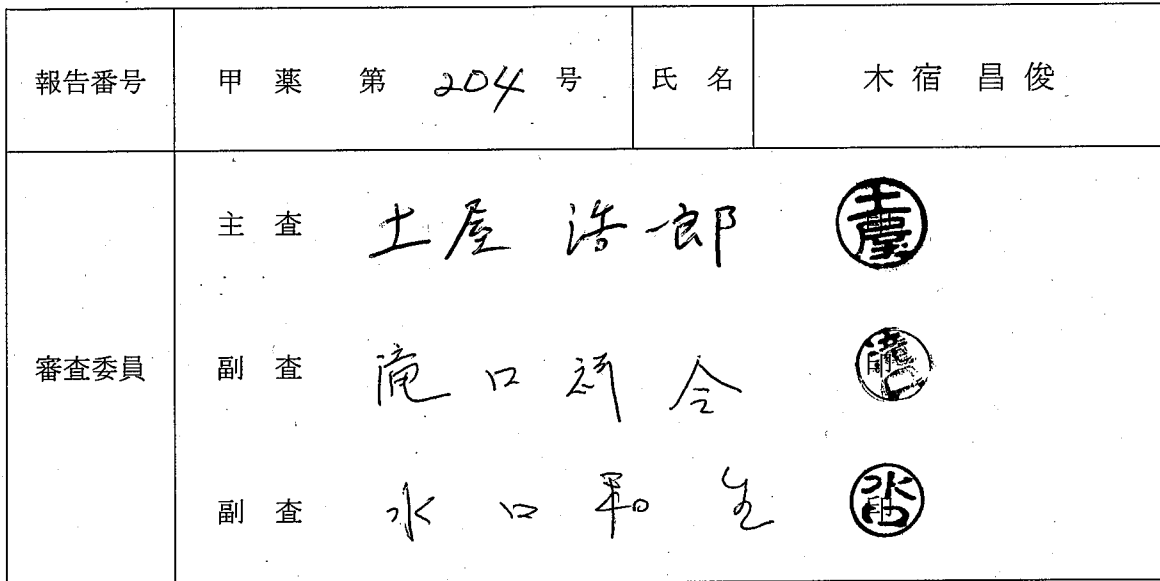 報告番号 甲 薬 第 204 号 氏 名 木 宿 昌 俊
主 査 土屋 浩一郎 土屋
審査委員 副 査 滝口祥令 瀧口
副 査 水口和生 水口